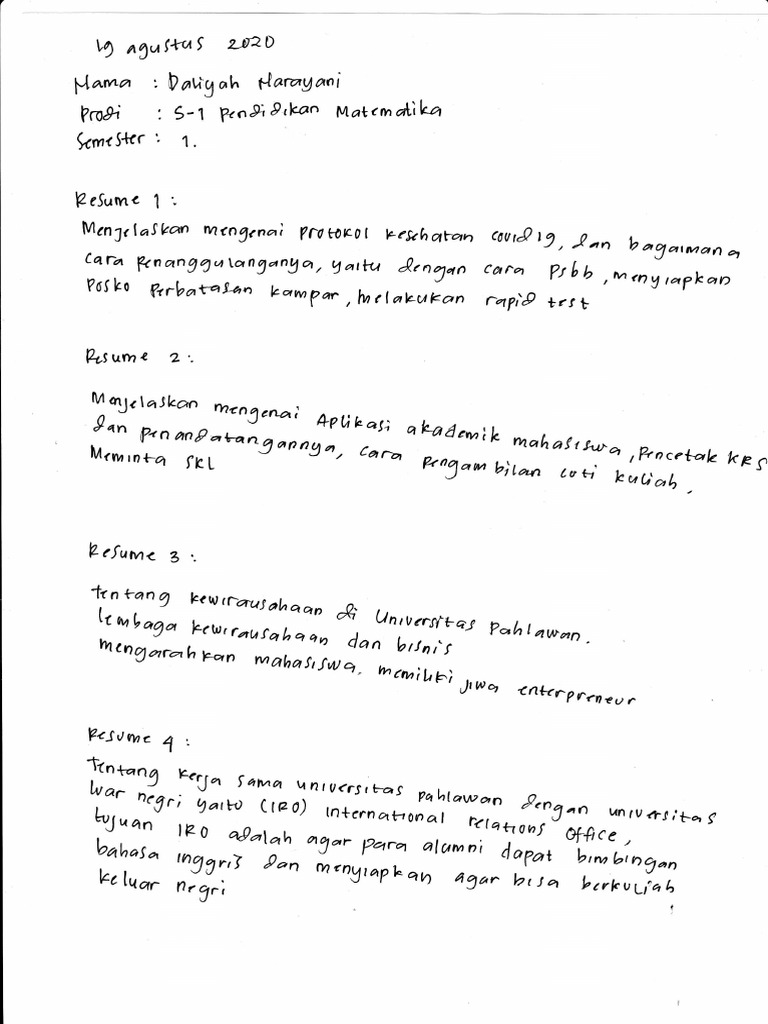 19 agustus 2020
Nama : Daliyah Narayani
Prodi : S-1 Pendidikan Matematika
Semester : 1.
Resume 1 :
Menjelaskan mengenai protokol kesehatan covid 19, dan bagaimana
cara penanggulanganya, yaitu dengan cara Psbb, menyiapkan
Posko perbatasan kampar, melakukan rapid test
Resume 2 :
Menjelaskan mengenai Aplikasi akademik mahasiswa, Pencetak KRS
dan penandatangannya, cara pengambilan cuti kuliah,
Meminta SKL
Resume 3 :
tentang kewirausahaan di Universitas Pahlawan.
lembaga kewirausahaan dan bisnis
mengarahkan mahasiswa. memiliki jiwa enterpreneur
Resume 4 :
Tentang kerja sama universitas pahlawan dengan universitas
luar negri yaitu (IRO) International relations Office,
tujuan IRO adalah agar para alumni dapat bimbingan
bahasa inggris dan menyiapkan agar bisa berkuliah
keluar negri